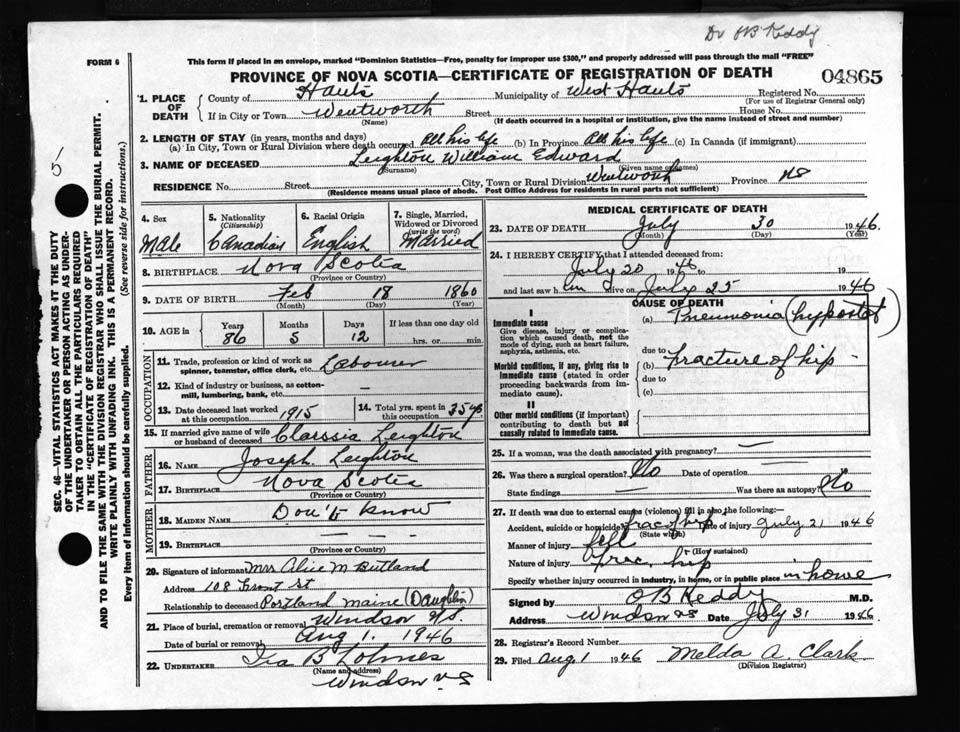 Dr OB Keddy
FORM 6
This form if placed in an envelope, marked "Dominion Statistics—Free, penalty for improper use $300," and properly addressed will pass through the mail "FREE"
PROVINCE OF NOVA SCOTIA—CERTIFICATE OF REGISTRATION OF DEATH
04865
5-
SEC. 46—VITAL STATISTICS ACT MAKES IT THE DUTY
OF THE UNDERTAKER OR PERSON ACTING AS UNDER-
TAKER TO OBTAIN ALL THE PARTICULARS REQUIRED
IN THE "CERTIFICATE OF REGISTRATION OF DEATH"
AND TO FILE THE SAME WITH THE DIVISION REGISTRAR WHO SHALL ISSUE THE BURIAL PERMIT.
WRITE PLAINLY WITH UNFADING INK. THIS IS A PERMANENT RECORD.
Every item of information should be carefully supplied. (See reverse side for instructions.)
1. PLACE OF DEATH County of Hants Municipality of West Hants Registered No.
(For use of Registrar General only)
If in City or Town Wentworth Street House No.
(Name) (If death occurred in a hospital or institution, give the name instead of street and number)
2. LENGTH OF STAY (in years, months and days)
(a) In City, Town or Rural Division where death occurred All his life (b) In Province All his life (c) In Canada (if immigrant)
3. NAME OF DECEASED Leighton William Edward
(Surname) (Given name or names)
RESIDENCE No. Street City, Town or Rural Division Wentworth Province NS
(Residence means usual place of abode. Post Office Address for residents in rural parts not sufficient)
4. Sex Male
5. Nationality (Citizenship) Canadian
6. Racial Origin English
7. Single, Married, Widowed or Divorced (write the word) Married
8. BIRTHPLACE Nova Scotia
(Province or Country)
9. DATE OF BIRTH Feb 18 1860
(Month) (Day) (Year)
10. AGE in Years 86 Months 5 Days 12 If less than one day old
hrs. or min.
OCCUPATION
11. Trade, profession or kind of work as
spinner, teamster, office clerk, etc. Labourer
12. Kind of industry or business, as cotton-
mill, lumbering, bank, etc. —
13. Date deceased last worked
at this occupation 1915
14. Total yrs. spent in
this occupation 35 yrs
15. If married give name of wife
or husband of deceased Clarssia Leighton
FATHER
16. Name Joseph Leighton
17. Birthplace Nova Scotia
(Province or Country)
MOTHER
18. MAIDEN NAME Don't know
19. BIRTHPLACE — — —
(Province or Country)
20. Signature of informant Mrs Alice M Butland
Address 108 Front St
Relationship to deceased Portland Maine (Daughter)
21. Place of burial, cremation or removal Windsor N/S.
Date of burial or removal Aug 1. 1946
22. UNDERTAKER Ira B Lohnes
(Name and address)
Windsor NS
MEDICAL CERTIFICATE OF DEATH
23. DATE OF DEATH July 30 1946.
(Month) (Day) (Year)
24. I HEREBY CERTIFY that I attended deceased from:
July 20 1946 to 19
and last saw him alive on July 25 1946
CAUSE OF DEATH
I
Immediate cause
Give disease, injury or complica-
tion which caused death, not the
mode of dying, such as heart failure,
asphyxia, asthenia, etc.
(a) Pneumonia
due to
Morbid conditions, if any, giving rise to
immediate cause (stated in order
proceeding backwards from im-
mediate cause).
(b) Fracture of hip
due to
(c)
II
Other morbid conditions (if important)
contributing to death but not
causally related to immediate cause.
25. If a woman, was the death associated with pregnancy? —
26. Was there a surgical operation? No Date of operation
State findings — Was there an autopsy? No
27. If death was due to external causes (violence) fill in also the following:—
Accident, suicide or homicide frac of hip Date of injury July 21 1946
(State which)
Manner of injury fell
(How sustained)
Nature of injury Frac. hip
Specify whether injury occurred in industry, in home, or in public place in home
Signed by OB Keddy M.D.
Address Windsor NS Date July 31 1946.
28. Registrar's Record Number
29. Filed Aug 1 1946 Melda A. Clark
(Division Registrar)